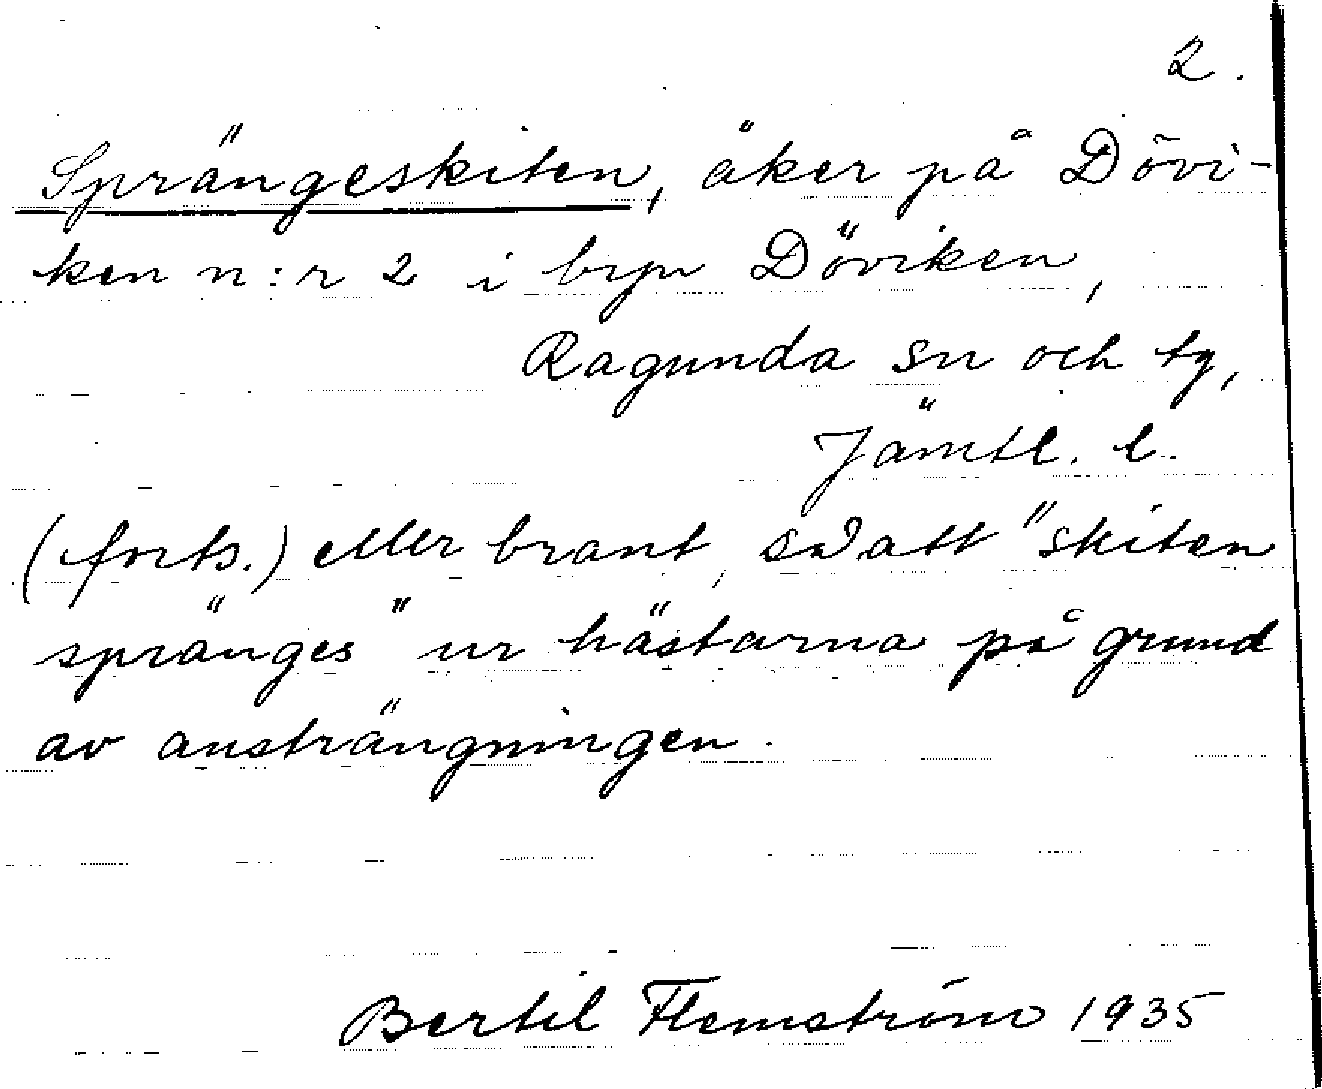 2.
Sprängeskiten, åker på Dövi-
ken n:r 2 i byn Döviken,
Ragunda sn och tg,
Jämtl. l.
(forts.) eller brant, så att "skiten
spränges" ur hästarna på grund
av ansträngningen.
Bertil Flemström 1935